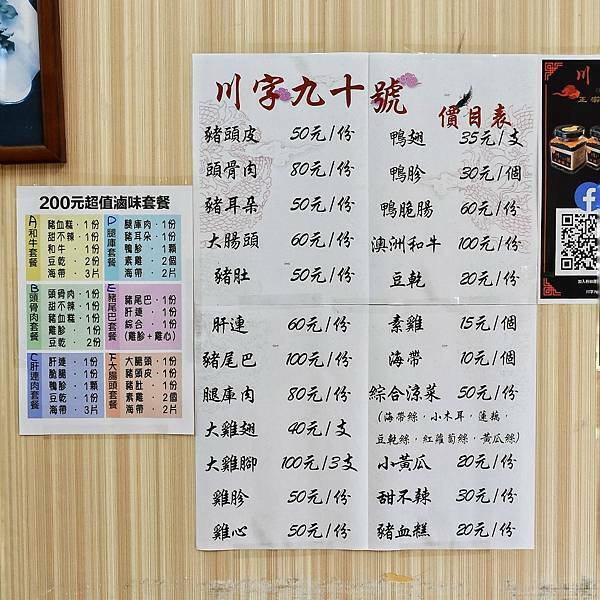 川字九十號
價目表
豬頭皮 50元/份
頭骨肉 80元/份
豬耳朵 50元/份
大腸頭 60元/份
豬肚 50元/份
肝連 60元/份
豬尾巴 100元/份
腿庫肉 80元/份
大雞翅 40元/支
大雞腳 100元/3支
雞胗 50元/份
雞心 50元/份
鴨翅 35元/支
鴨胗 30元/個
鴨脆腸 60元/份
澳洲和牛 100元/份
豆乾 20元/份
素雞 15元/個
海帶 10元/個
綜合涼菜 50元/份
(海帶絲，小木耳，蓮藕，
豆乾絲，紅蘿蔔絲，黃瓜絲)
小黃瓜 20元/份
甜不辣 30元/份
豬血糕 20元/份
200元超值滷味套餐
A和牛套餐
豬血糕·1份
甜不辣·1份
和牛·1份
豆乾·2份
海帶·3片
D腿庫套餐
腿庫肉·1份
豬耳朵·1份
鴨胗·1顆
素雞·2個
海帶·2片
B頭骨肉套餐
頭骨肉·1份
甜不辣·1份
豬血糕·1份
雞胗·1份
豆乾·2份
E豬尾巴套餐
豬尾巴·1份
肝連·1份
綜合·1份
(雞胗+雞心)
C肝連肉套餐
肝連·1份
脆腸·1份
鴨胗·1顆
豆乾·1份
海帶·3片
F大腸頭套餐
大腸頭·1份
豬頭皮·1份
豬肚·1份
素雞·2個
海帶·2片
川
正